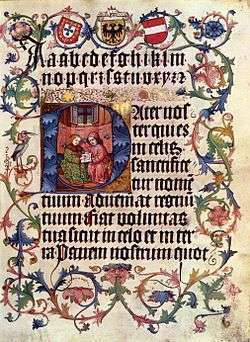 A a b c d e f g h i k l m
n o p q r r s s t u v x y z
Pater nos
ter qui es
in celis
sanctifice
tur nomē
tuum
tuum fiat voluntas
tua sicut in celo et in ter
ra Panem nostrum quot